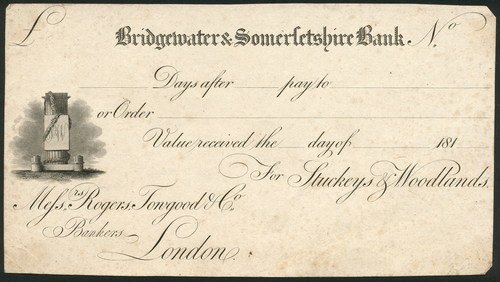 £ Bridgewater & Somersetshire Bank N.o
Days after pay to
or Order
Value received the day of 181
For Stuckeys & Woodlands.
Mefs.rs Rogers, Towgood & Co.
Bankers
London.